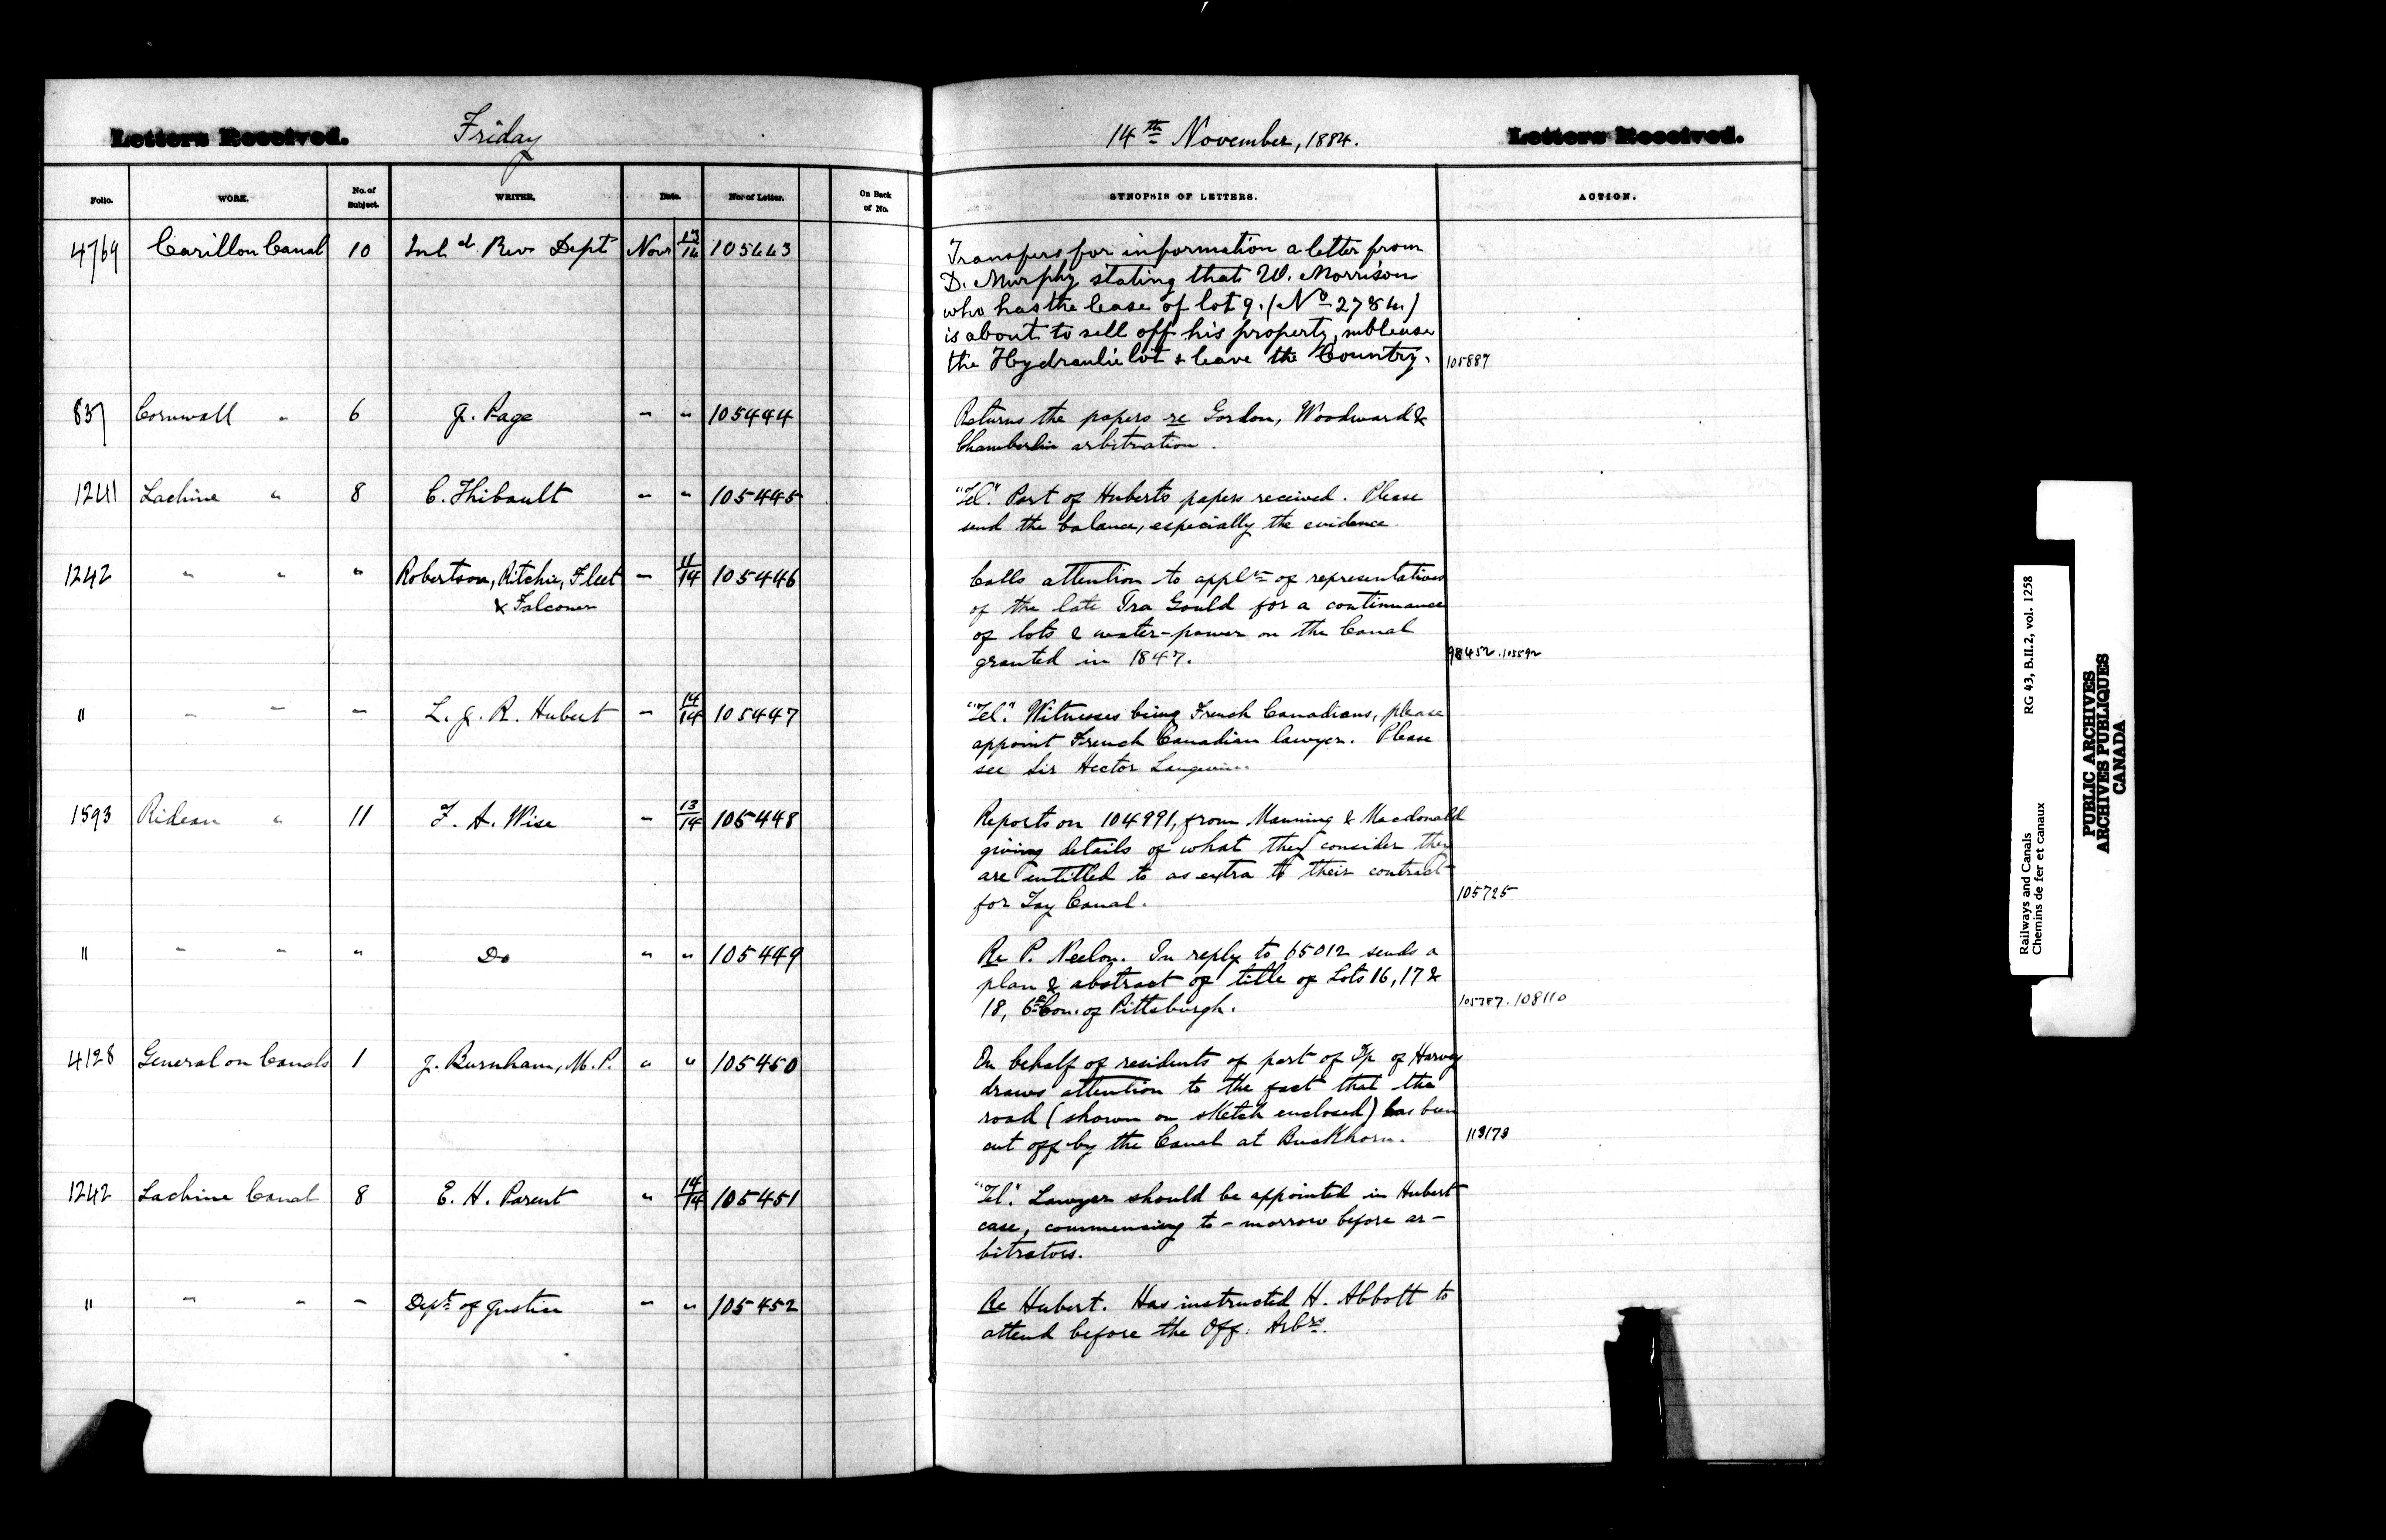 Letters Received. Friday 14th November, 1884. Letters Received.
Folio. WORK. No. of Subject. WRITER. Date. No. of Letter. On Back of No. SYNOPSIS OF LETTERS. ACTION.
4769 Carillon Canal 10 Inld. Rev. Dept Novr 13/14 105443 Transfers for information a letter from
D. Murphy stating that W. Morrison
who has the lease of lot 9. (No 2784)
is about to sell off his property, sublease
the Hydraulic lot & leave the Country. 105887
837 Cornwall " 6 J. Page " " 105444 Returns the papers re Gordon, Woodward &
Chamberlin arbitration.
1241 Lachine " 8 C. Thibault " " 105445 "Tel." Part of Huberts papers received. Please
send the balance, especially the evidence.
1242 " " " Robertson, Ritchie, Fleet " 11/14 105446 Calls attention to appln of representatives
& Falconer of the late Ira Gould for a continuance
of lots & water-power on the Canal
granted in 1847. 98452. 105592
" " " " L. J. R. Hubert " 14/14 105447 "Tel." Witnesses being French Canadians, please
appoint French Canadian lawyer. Please
see Sir Hector Langevin.
1593 Rideau " 11 F. A. Wise " 13/14 105448 Reports on 104991, from Manning & Macdonald
giving details of what they consider they
are entitled to as extra to their contract
for Tay Canal. 105725
" " " " Do " " 105449 Re P. Neelon. In reply to 65012 sends a
plan & abstract of title of Lots 16, 17 &
18, 6th Con. of Pittsburgh. 105787. 108110
4128 General on Canals 1 J. Burnham, M.P. " " 105450 On behalf of residents of part of Tp. of Harvey
draws attention to the fact that the
road (shown on sketch enclosed) has been
cut off by the Canal at Buckhorn. 113173
1242 Lachine Canal 8 E. H. Parent " 14/14 105451 "Tel." Lawyer should be appointed in Hubert
case, commencing to-morrow before ar-
bitrators.
" " " " Dept. of Justice " " 105452 Re Hubert. Has instructed H. Abbott to
attend before the Off. Arbrs.
Railways and Canals RG 43, B.II.2, vol. 1258
Chemins de fer et canaux
PUBLIC ARCHIVES
ARCHIVES PUBLIQUES
CANADA